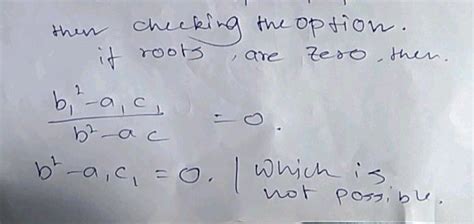 then checking the option.
if roots, are zero, then.
b₁²-a₁c₁ / b²-ac = 0.
b²-a₁c₁ = 0. | which is
not possible.